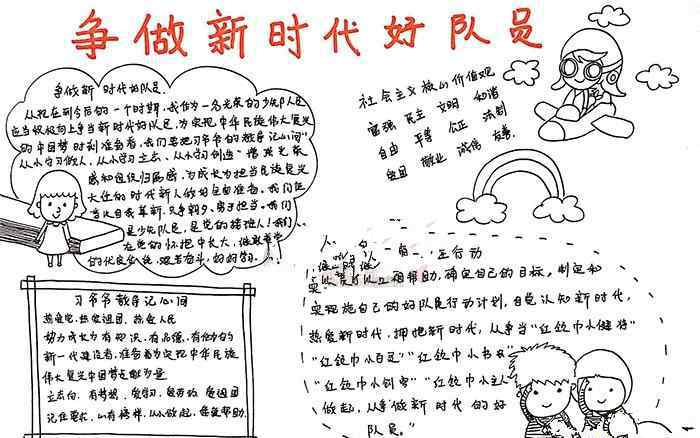 争做新时代好队员
争做新时代好队员
从现在到今后的一个时期,我作为一名光荣的少先队员
应当积极向上争当新时代好队员,为实现中华民族伟大复兴
的中国梦时刻准备着,我们要把习爷爷的教导记心间"
从小学习做人、从小学习立志、从小学习创造"增强光荣
感和组织归属感,为成长为担当民族复兴
大任的时代新人做好全面准备。我们在
当以自我革新,只争朝夕,勇于担当。我们
是少先队员,是党的接班人!我们
在党的怀抱中长大,
的代
社会主义核心价值观
富强 民主 文明 和谐
自由 平等 公正 法制
爱国 敬业 诚信 友善
习爷爷教导记心间
热爱党,热爱祖国,热爱人民
努力成长为有知识、有品德、有作为的
新一代建设者,准备着为实现中华民族
伟大复兴中国梦
立志向,有梦想,爱学习,爱劳动,爱祖国
记住要求,心有榜样,从小做起,接受帮助.
行动
互相帮助,确定自己的目标,制定和
实现施自己的好队员行动计划,自觉认知新时代,
热爱新时代,拥抱新时代,从争当"红领巾小健将"
"红领巾小百灵""红领巾小书
"红领巾小创客""红领巾小主人
做起,从争做新时代的好
队员。"